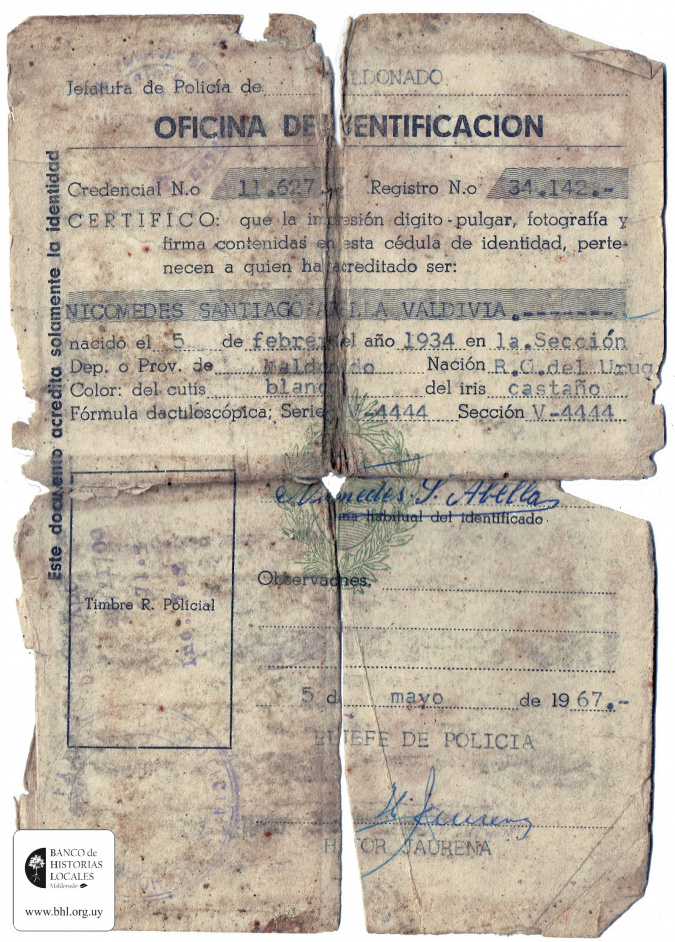 Jefatura de Policía de LDONADO
OFICINA DE ENTIFICACION
Credencial N.o 11.627.- Registro N.o 34.142.-
CERTIFICO: que la impresión dígito-pulgar, fotografía y
firma contenidas en esta cédula de identidad, perte-
necen a quien ha acreditado ser:
NICOMEDES SANTIAGO A LLA VALDIVIA.-------
nacido el 5 de febrer el año 1934 en 1a.Sección
Dep. o Prov. de Maldonado Nación R.O.del Urug
Color: del cutis blanc del iris castaño
Fórmula dactiloscópica; Serie V-4444 Sección V-4444
Este documento acredita solamente la identidad
Nicomedes S. Abella
ma habitual del identificado
Timbre R. Policial
Observaciones.
5 de mayo de 1967.-
EL JEFE DE POLICIA
H. Jaurena
H TOR JAURENA
BANCO de
HISTORIAS
LOCALES
Maldonado
www.bhl.org.uy